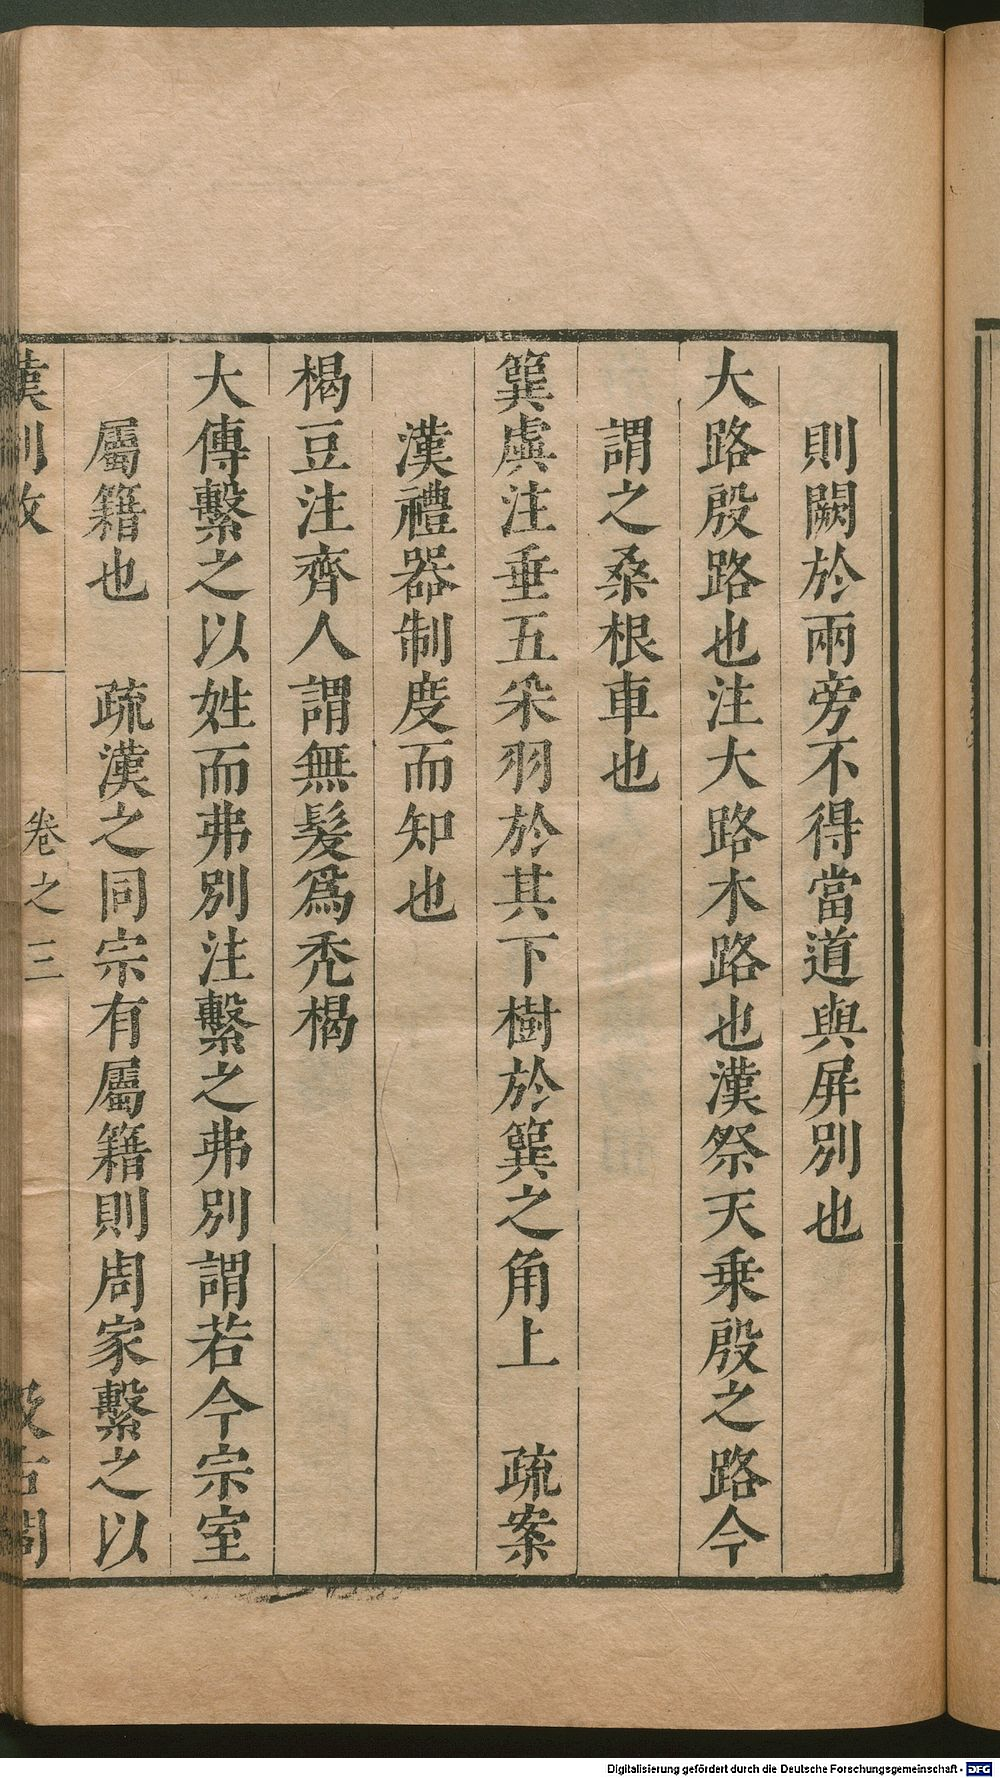 則闕於兩旁不得當道與屏別也
大路殷路也注大路木路也漢祭天乗殷之路今
謂之桑根車也
簨虡注垂五采羽於其下樹於簨之角上　疏案
漢禮器制度而知也
楬豆注齊人謂無髮爲禿楬
大傳繫之以姓而弗別注繫之弗別謂若今宗室
屬籍也　疏漢之同宗有屬籍則周家繫之以
漢制攷　卷之三　汲古閣
Digitalisierung gefördert durch die Deutsche Forschungsgemeinschaft - DFG